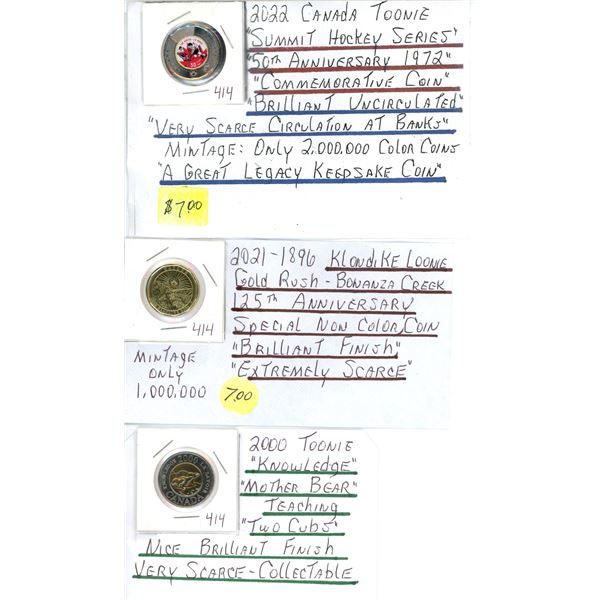 2022 CANADA TOONIE
"SUMMIT HOCKEY SERIES"
"50TH ANNIVERSARY 1972"
"COMMEMORATIVE COIN"
414
"BRILLIANT UNCIRCULATED"
"VERY SCARCE CIRCULATION AT BANKS"
MINTAGE: ONLY 2,000.000 COLOR COINS
"A GREAT LEGACY KEEPSAKE COIN"
$7.00
2021-1896 KLONDIKE LOONIE
GOLD RUSH - BONANZA CREEK
125TH ANNIVERSARY
414
SPECIAL NON COLOR COIN
"BRILLIANT FINISH"
"EXTREMELY SCARCE"
MINTAGE
ONLY
1,000,000
7.00
2000 TOONIE
"KNOWLEDGE"
"MOTHER BEAR"
TEACHING
CANADA
414
"TWO CUBS"
NICE BRILLIANT FINISH
VERY SCARCE - COLLECTABLE